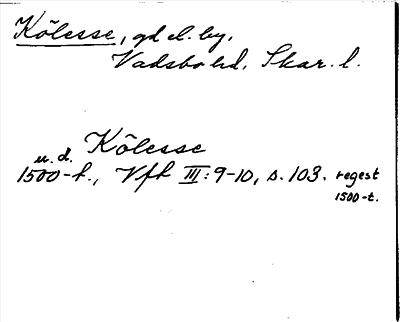 Kölesse, gd el. by,
Vadsbo hd. Skar. l.
u. d. Kölesse
1500-t., Vfk III: 9-10, s. 103. regest
1500-t.